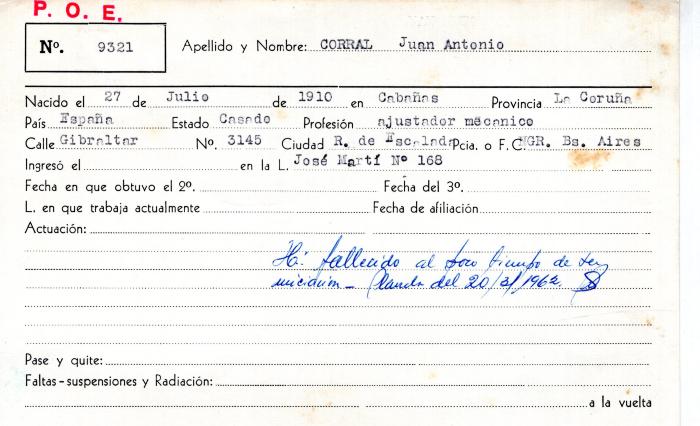 P. O. E.
Nº. 9321 Apellido y Nombre: CORRAL Juan Antonio
Nacido el 27 de Julio de 1910 en Cabañas Provincia La Coruña
País España Estado Casado Profesión ajustador mecanico
Calle Gibraltar Nº. 3145 Ciudad R. de Escalada Pcia. o F. C. NGR. Bs. Aires
Ingresó el en la L. José Martí Nº 168
Fecha en que obtuvo el 2º. Fecha del 3º.
L. en que trabaja actualmente Fecha de afiliación
Actuación:
H∴ fallecido al poco tiempo de su
iniciación - Plancha del 20/3/1962
Pase y quite:
Faltas - suspensiones y Radiación:
a la vuelta